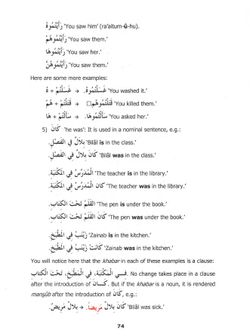 رَأَيْتُمُوهُ 'You saw him' (ra'aitum-û-hu).
رَأَيْتُمُوهُمْ 'You saw them.'
رَأَيْتُمُوهَا 'You saw her.'
رَأَيْتُمُوهُنَّ 'You saw them.'
Here are some more examples:
غَسَلْتُمْ + هُ → غَسَلْتُمُوهُ. 'You washed it.'
قَتَلْتُمْ + هُمْ → قَتَلْتُمُوهُمْ 'You killed them.'
سَأَلْتُمْ + هَا → سَأَلْتُمُوهَا. 'You asked her.'
5) كَانَ 'he was': It is used in a nominal sentence, e.g.:
بِلالٌ في الفَصْلِ 'Bilâl is in the class.'
كَانَ بِلالٌ في الفَصْلِ 'Bilâl was in the class.'
الْمُدَرِّسُ في الْمَكْتَبَةِ. 'The teacher is in the library.'
كَانَ الْمُدَرِّسُ في الْمَكْتَبَةِ. 'The teacher was in the library.'
القَلَمُ تَحْتَ الكِتَابِ. 'The pen is under the book.'
كَانَ القَلَمُ تَحْتَ الكِتَابِ. 'The pen was under the book.'
زَيْنَبُ في الْمَطْبَخِ. 'Zainab is in the kitchen.'
كَانَتْ زَيْنَبُ في الْمَطْبَخِ. 'Zainab was in the kitchen.'
You will notice here that the khabar in each of these examples is a clause:
في الْمَكْتَبَةِ، في الْمَطْبَخِ، تَحْتَ الْكِتَابِ. No change takes place in a clause
after the introduction of كَانَ. But if the khabar is a noun, it is rendered
mansûb after the introduction of كَانَ, e.g.:
بِلالٌ مَرِيضٌ. → كَانَ بِلالٌ مَرِيضاً 'Bilâl was sick.'
74